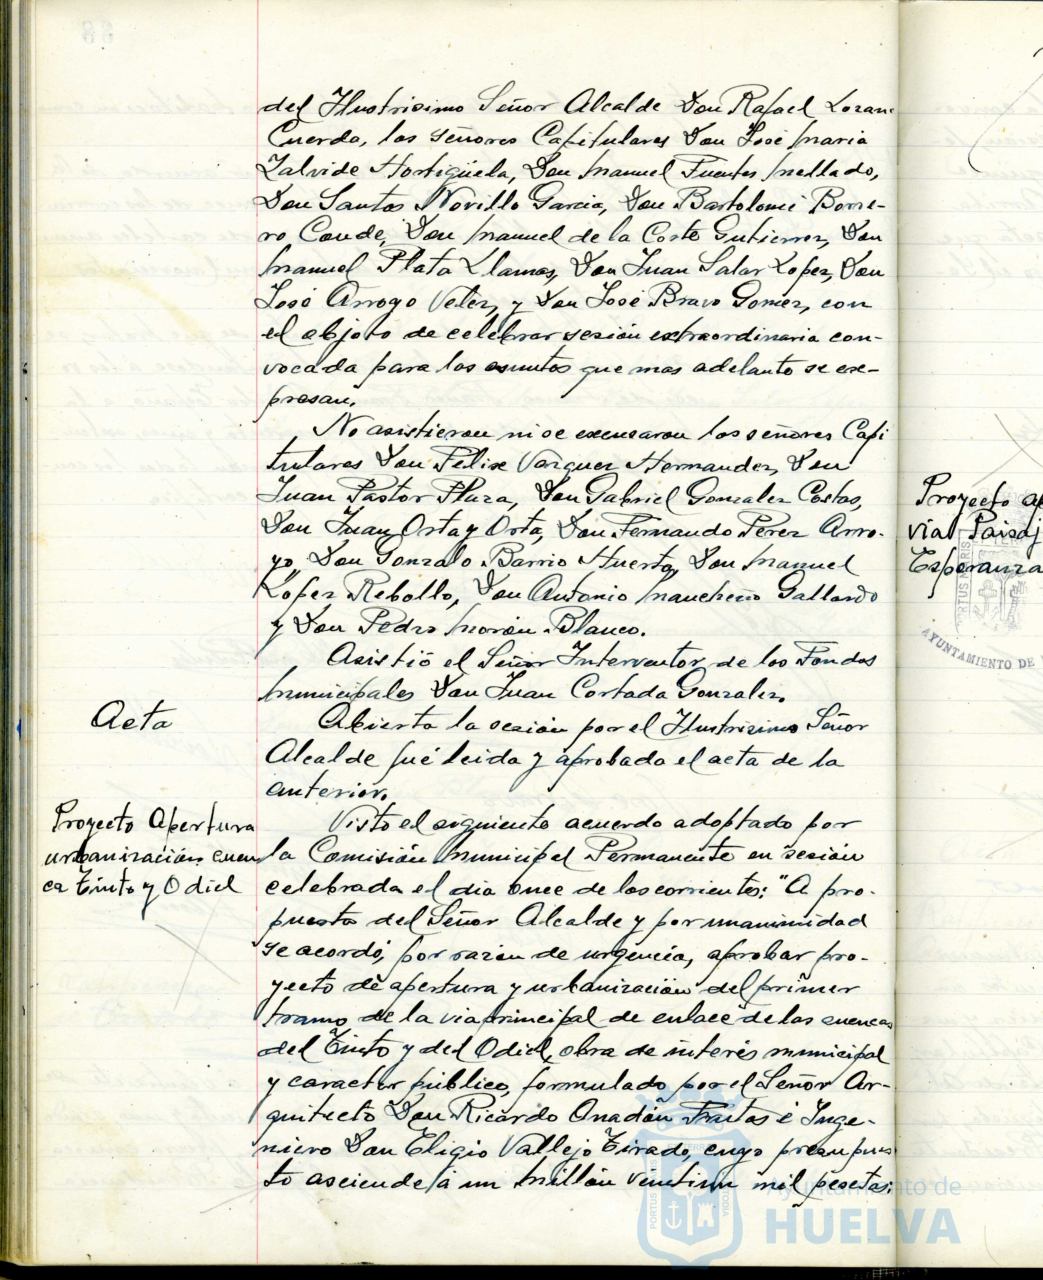 del Ilustrisimo Señor Alcalde Don Rafael Lozano
Cuerda, los señores Capitulares Don José Maria
Zalvide Hortigüela, Don Manuel Fuentes Mellado,
Don Santos Novillo Garcia, Don Bartolomé Borre-
ro Conde, Don Manuel de la Corte Gutierrez, Don
Manuel Plata Llamas, Don Juan Salas Lopez, Don
José Arroyo Velez, y Don José Bravo Gomez, con
el objeto de celebrar sesión extraordinaria con-
vocada para los asuntos que mas adelante se ex-
presan.
No asistieron ni se excusaron los señores Capi
tulares Don Felix Vazquez Hernandez, Don
Juan Pastor Plaza, Don Gabriel Gonzalez Costas,
Don Juan Orta y Orta, Don Fernando Perez Arro-
yo, Don Gonzalo Barrio Huerta, Don Manuel
Lopez Rebollo, Don Antonio Mancheño Gallardo
y Don Pedro Morón Blanco.
Asistió el Señor Interventor de los Fondos
Municipales Don Juan Cortada Gonzalez.
Acta
Abierta la sesión por el Ilustrisimo Señor
Alcalde fué leida y aprobada el acta de la
anterior.
Proyecto Apertura
urbanización cuen
ca Tinto y Odiel
Visto el siguiente acuerdo adoptado por
la Comisión Municipal Permanente en sesión
celebrada el dia once de los corrientes: "A pro-
puesta del Señor Alcalde y por unanimidad
se acordó, por razón de urgencia, aprobar pro-
yecto de apertura y urbanización del primer
tramo de la via principal de enlace de las cuencas
del Tinto y del Odiel, obra de interés municipal
y caracter público, formulado por el Señor Ar-
quitecto Don Ricardo Anadón Frutos é Inge-
niero Don Eligio Vallejo Tirado, cuyo presupues
to asciende á un millón veintiun mil pesetas;
Proyecto a
via Paisaj
Esperanza
AYUNTAMIENTO DE
PORTUS MARIS
Ayuntamiento de
HUELVA